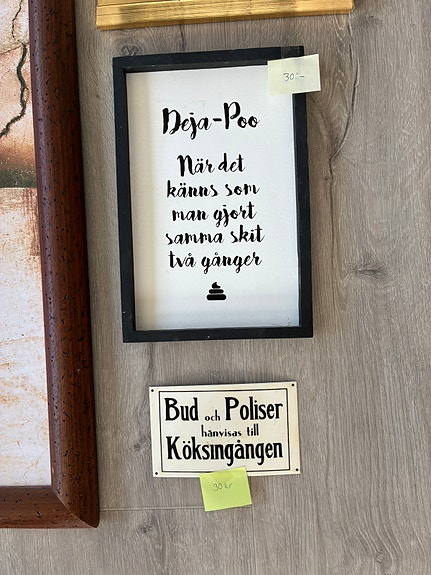 30:-
Deja-Poo
När det
känns som
man gjort
samma skit
två gånger
Bud och Poliser
hänvisas till
Köksingången
30 kr